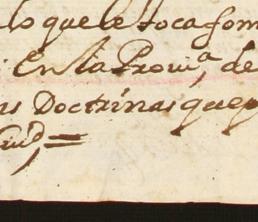 lo que le toca fom
En la Prouª, de
us Doctrinas que p